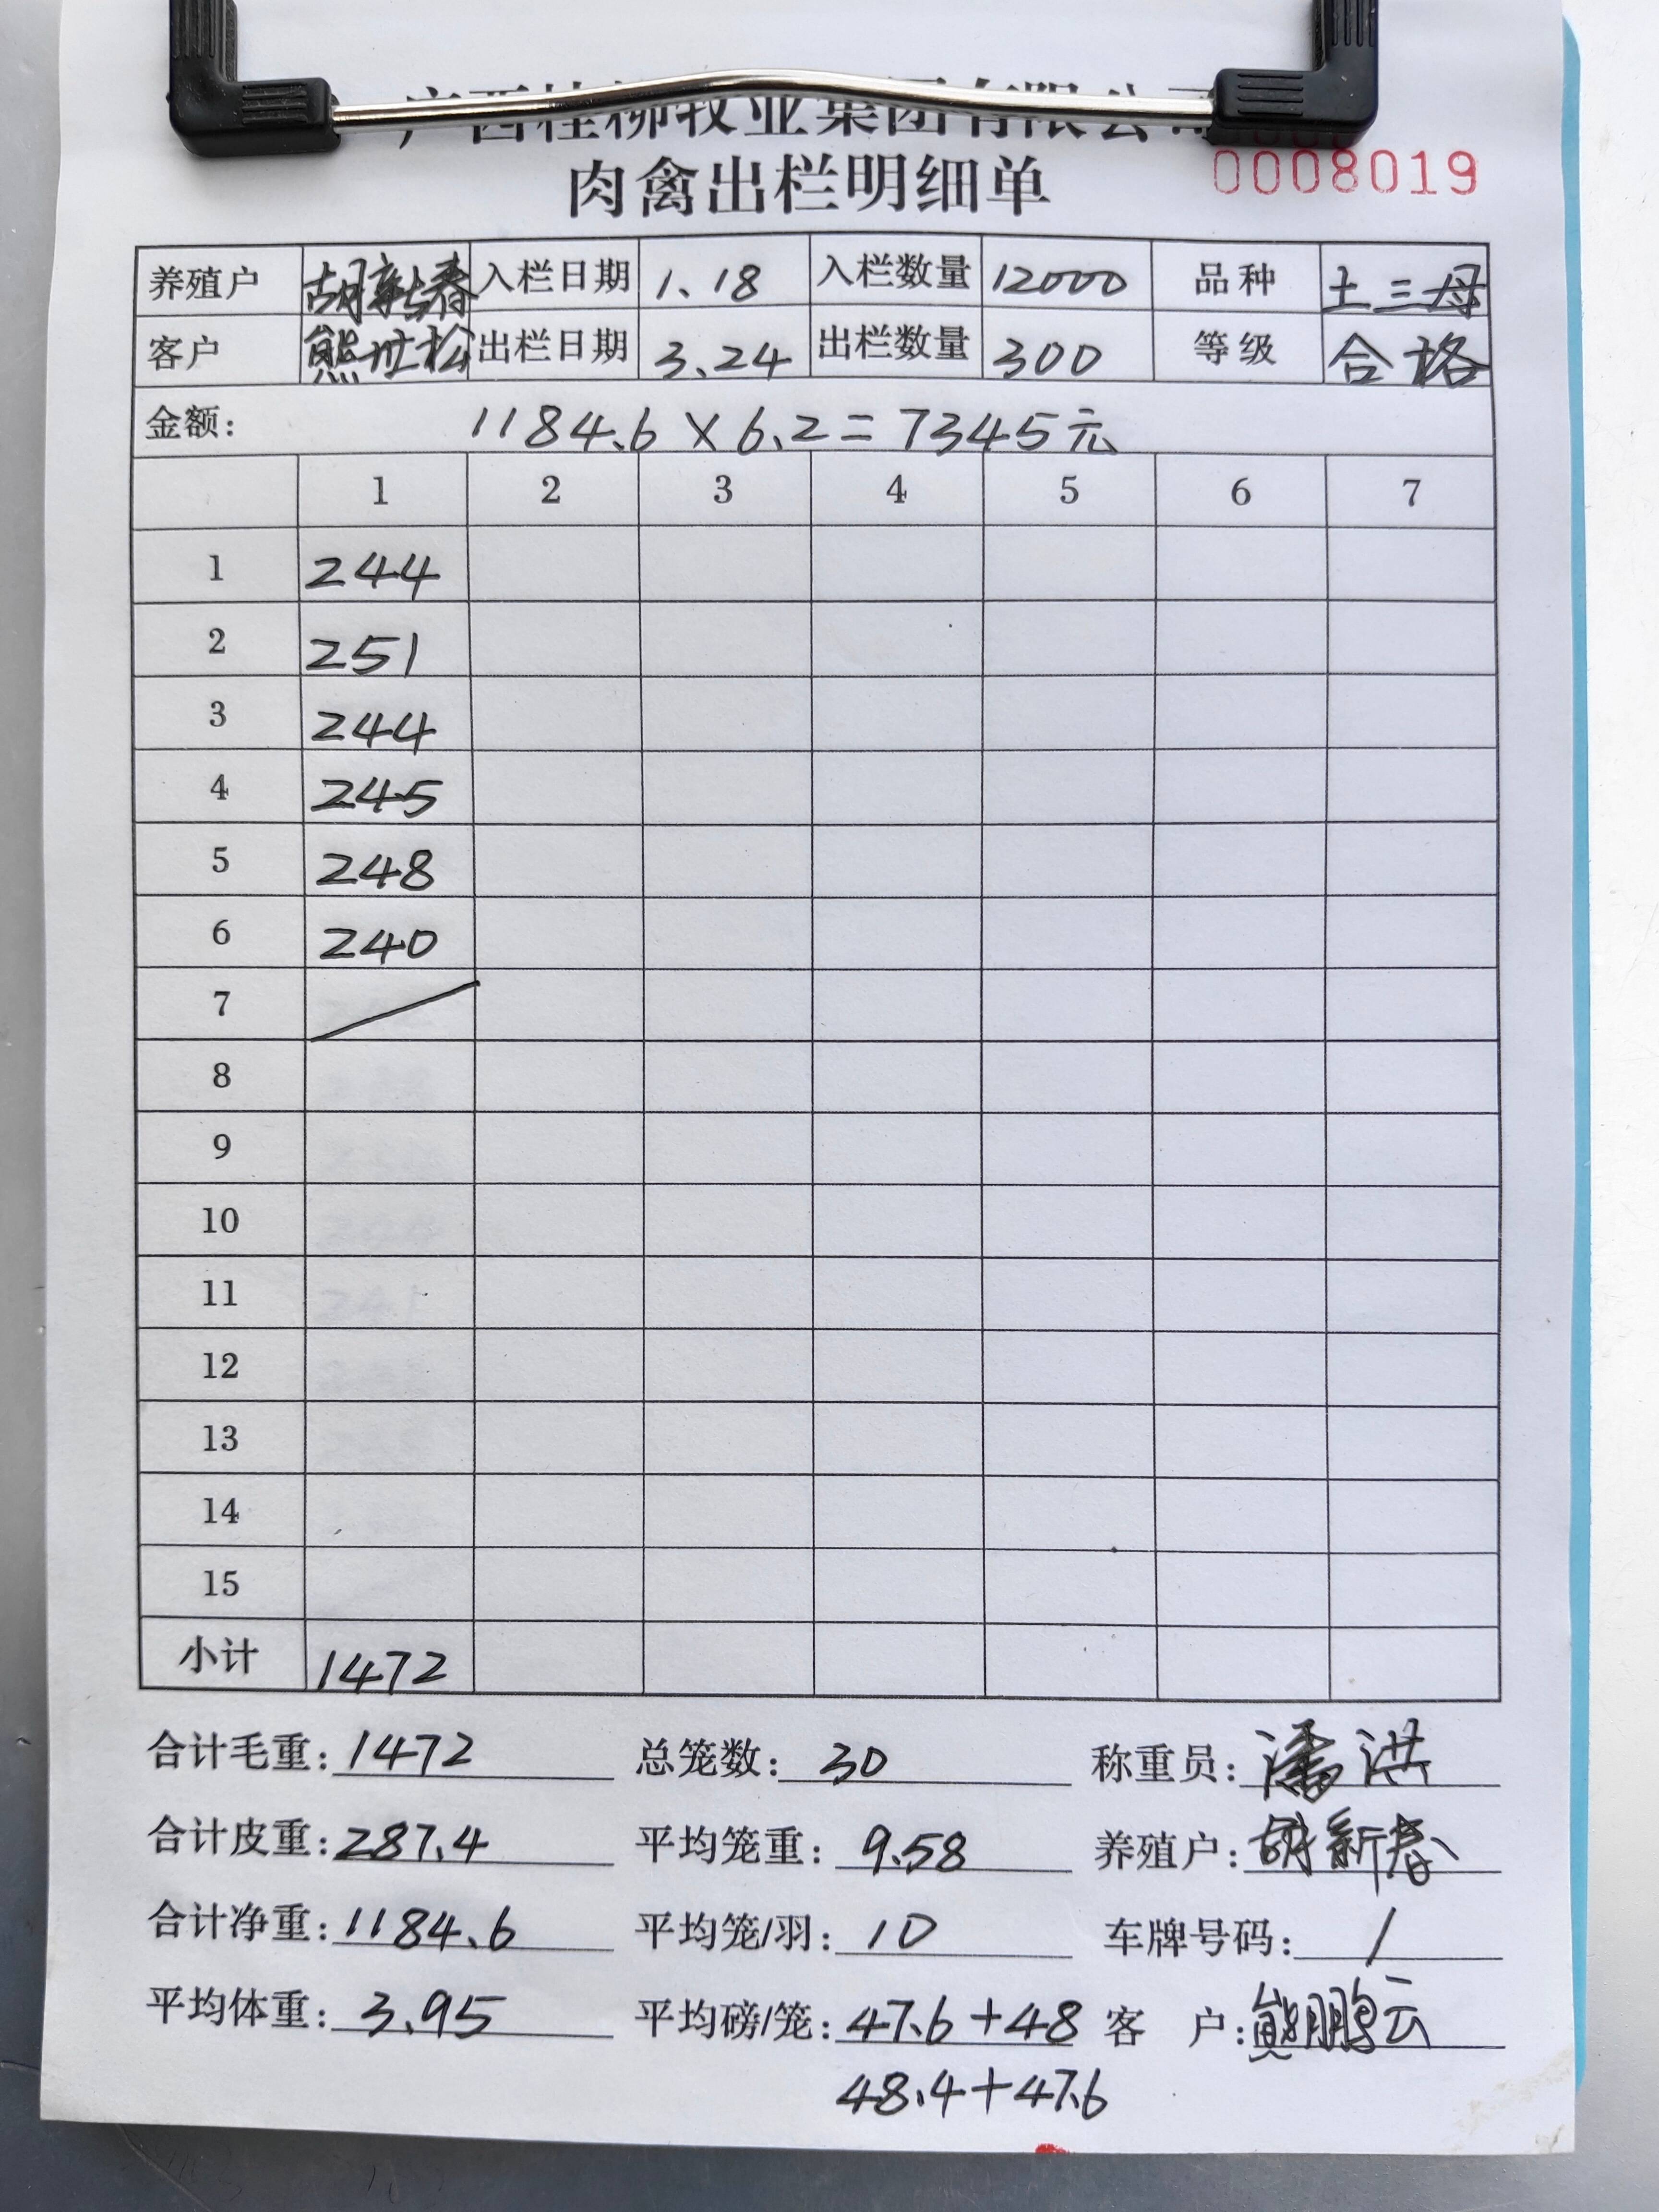 广西桂柳牧业集团有限公司
肉禽出栏明细单
0008019
养殖户 胡新春 入栏日期 1.18 入栏数量 12000 品种 土三母
客户 熊世松 出栏日期 3.24 出栏数量 300 等级 合格
金额: 1184.6×6.2=7345元
1 2 3 4 5 6 7
1 244
2 251
3 244
4 245
5 248
6 240
7
8
9
10
11
12
13
14
15
小计 1472
合计毛重: 1472 总笼数: 30 称重员: 潘洪
合计皮重: 287.4 平均笼重: 9.58 养殖户: 胡新春
合计净重: 1184.6 平均笼/羽: 10 车牌号码: /
平均体重: 3.95 平均磅/笼: 47.6+48 客 户: 熊鹏云
48.4+47.6